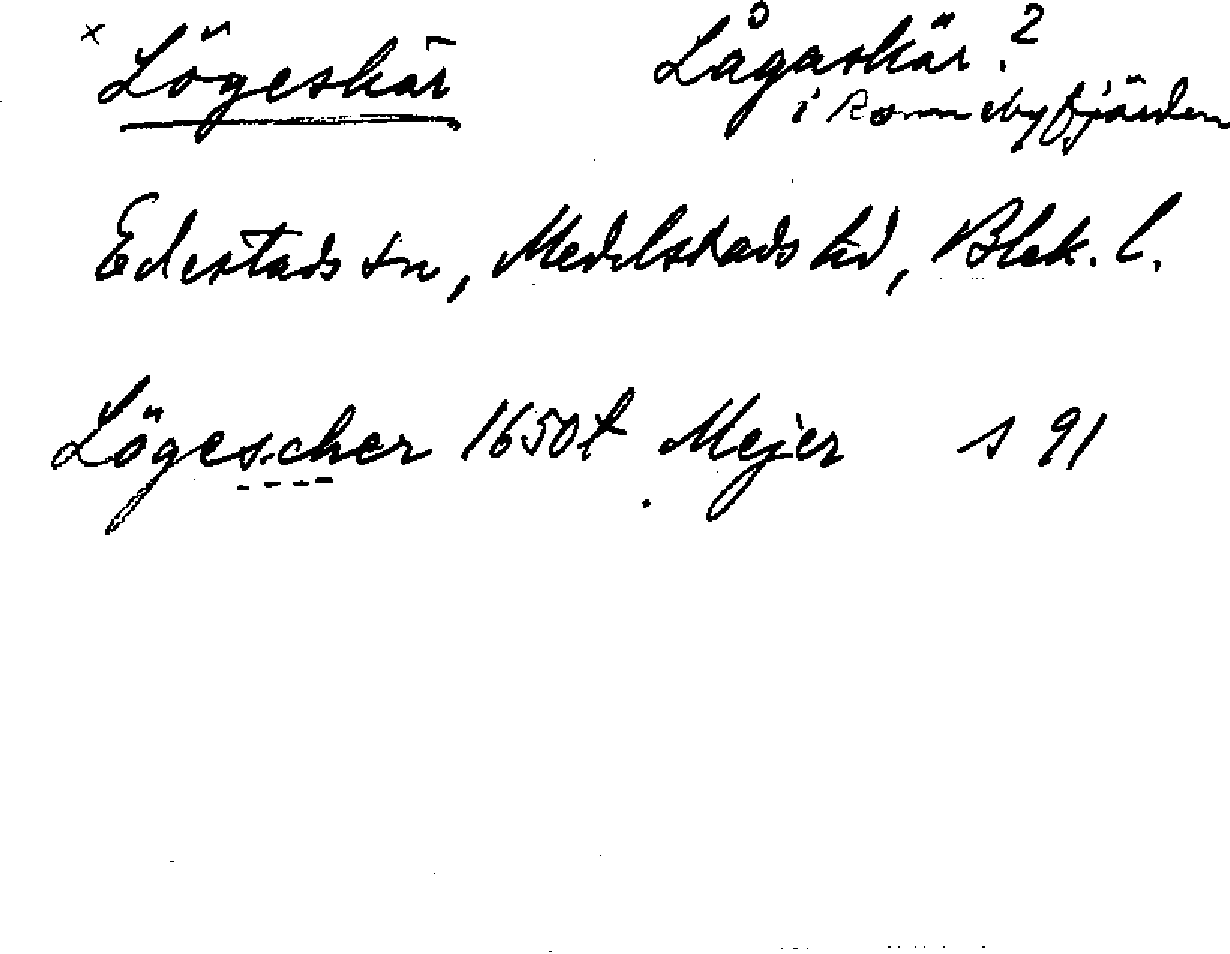 x Lögeskär Lågaskär?
i Ronnebyfjärden
Edestads sn, Medelstads hd, Blek. l.
Lögescher 1650t. Mejer s 91